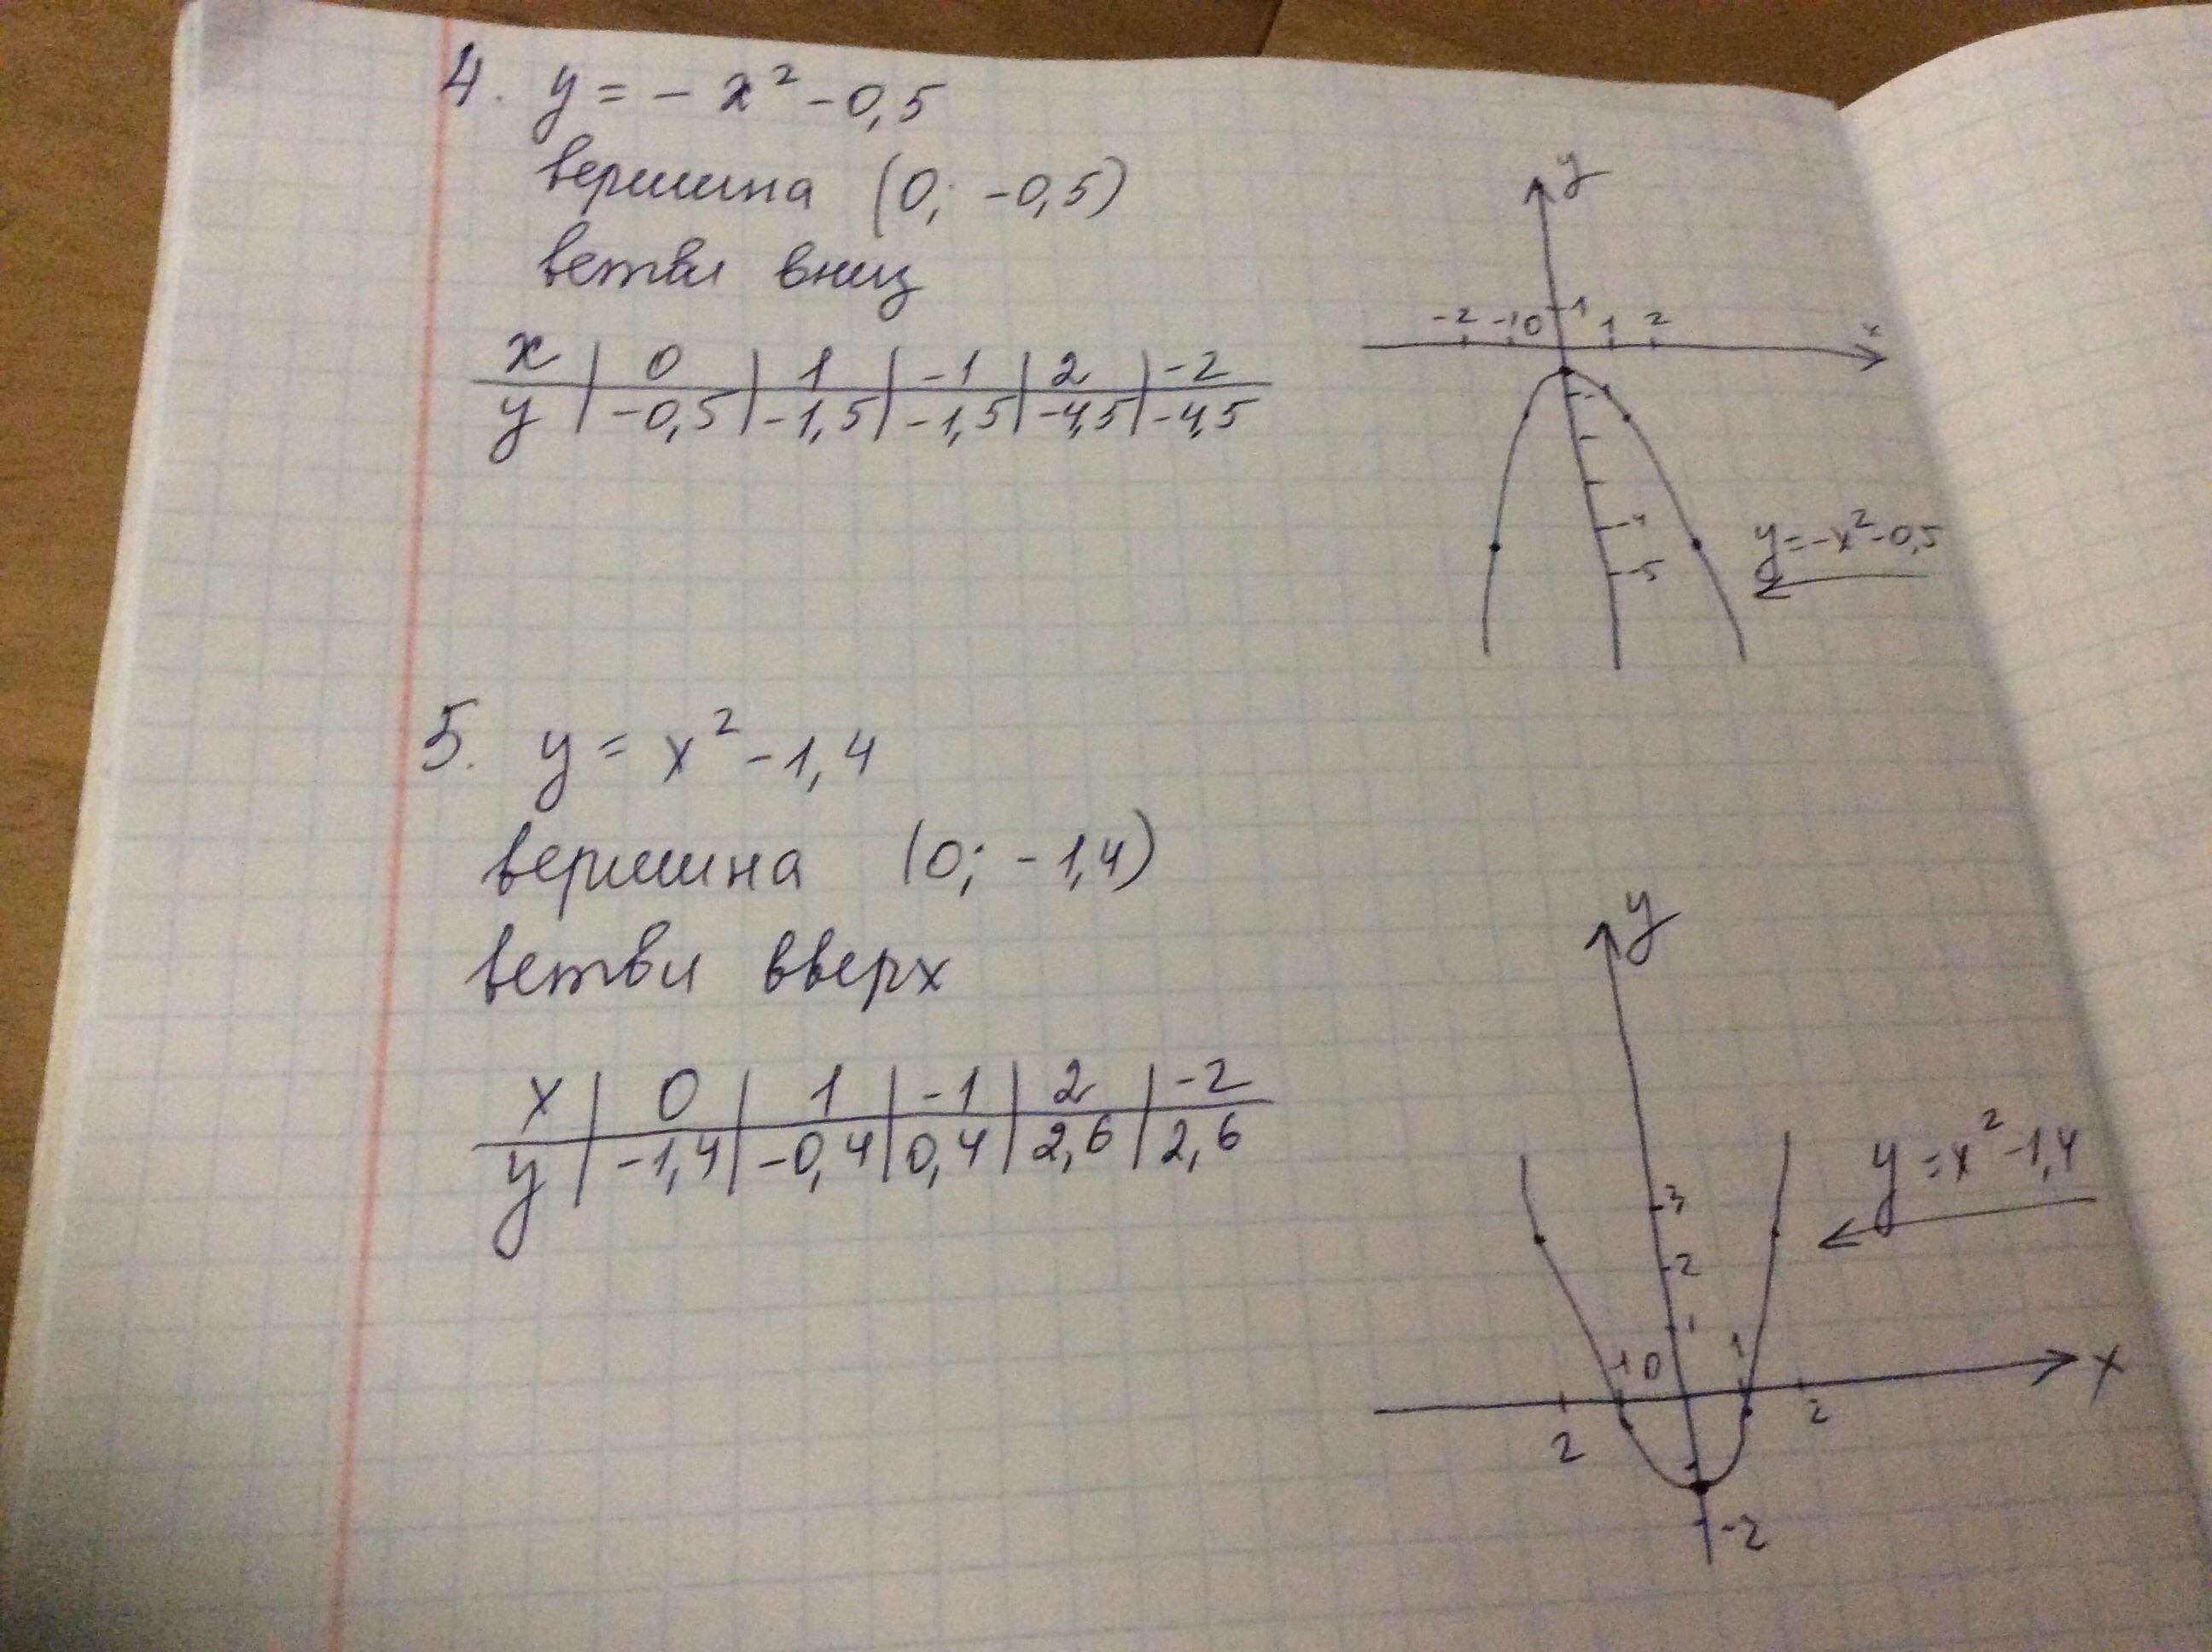 4. y = - x² - 0,5
вершина (0; -0,5)
ветви вниз
x | 0 | 1 | -1 | 2 | -2
y | -0,5 | -1,5 | -1,5 | -4,5 | -4,5
y
1
-2 -1 0 1 2 x
-4
-5
y=-x²-0,5
5. y = x² - 1,4
вершина (0; -1,4)
ветви вверх
x | 0 | 1 | -1 | 2 | -2
y | -1,4 | -0,4 | 0,4 | 2,6 | 2,6
y
3
2
1
1 0 1 x
2 2
-2
y = x² - 1,4